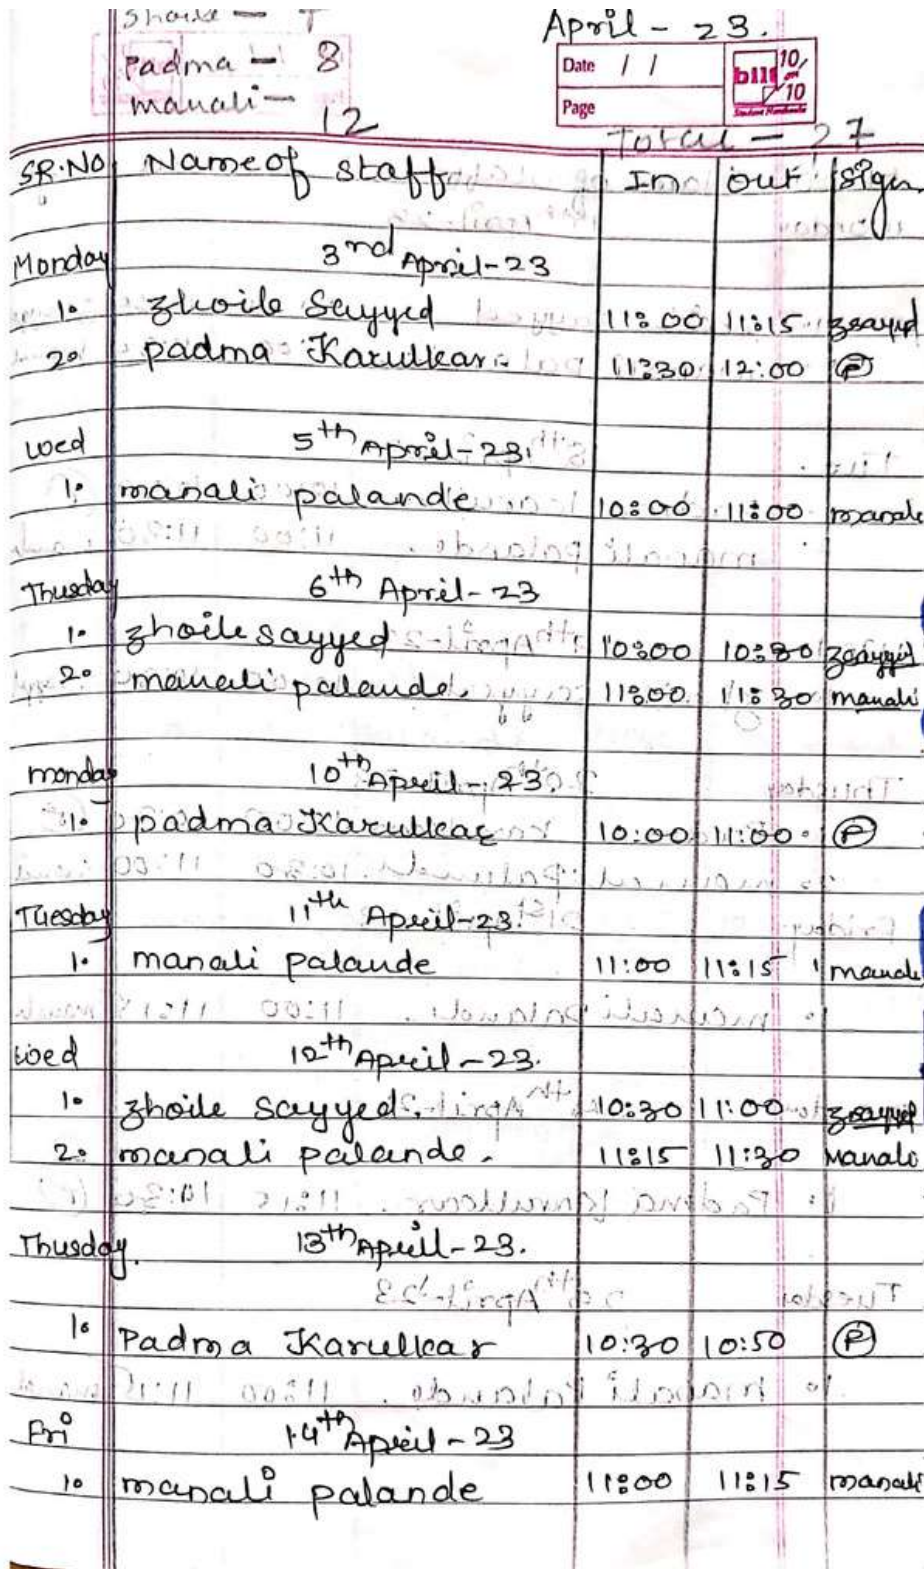 Shoile - 7
April - 23.
Padma - 8
Date / /
bilt 10/10
manali -
Page
12
Total - 27
SR.NO Name of staff In out Sign
Monday 3rd April-23
1. zhoile Sayyed 11:00 11:15 zsayyed
2. padma Karulkar. 11:30 12:00 P
Wed 5th April-23.
1. manali palande 10:00 11:00 manali
Thusday 6th April-23
1. zhoile sayyed 10:00 10:30 zsayyed
2. manali palande. 11:00 11:30 manali
monday 10th April-23
1. padma Karulkar 10:00 11:00 P
Tuesday 11th April-23.
1. manali palande 11:00 11:15 manali
Wed 12th April-23.
1. zhoile sayyed. 10:30 11:00 zsayyed
2. manali palande. 11:15 11:30 Manali
Thusday. 13th April-23.
1. Padma Karulkar 10:30 10:50 P
Fri 14th April-23
1. manali palande 11:00 11:15 manali